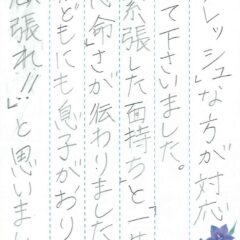 レッシュ」な方が対応
て下さいました。
緊張した面持ち」と「一生
命」さが伝わりました
どもにも息子がおり
張れ!!」と思いまし